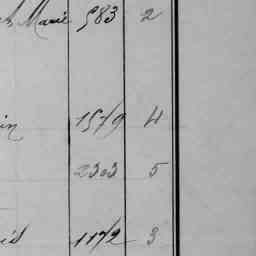 Marie 583 2
in 1579 4
2303 5
1172 3